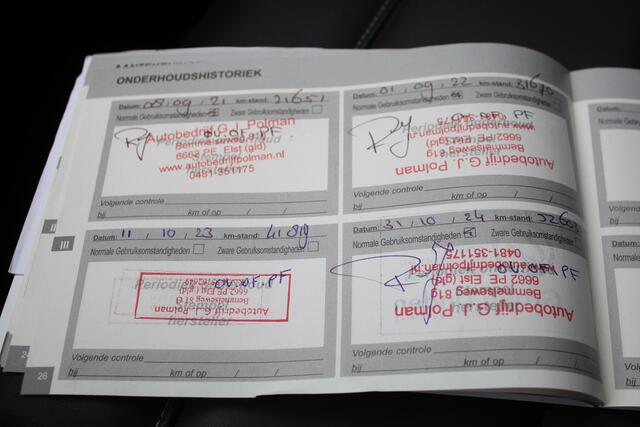 ONDERHOUDSHISTORIEK
Datum: 08, 09, 21 km-stand: 21651
Normale Gebruiksomstandigheden Zware Gebruiksomstandigheden
Autobedrijf G.J. Polman
OV.OF.PF
Bemmelseweg 81g
6662 PE Elst (gld)
www.autobedrijfpolman.nl
0481-351175
Volgende controle
bij km of op / /
Datum: 01, 09, 22 km-stand: 31670
Normale Gebruiksomstandigheden Zware Gebruiksomstandigheden
OV.OF.PF
Autobedrijf G.J. Polman
Bemmelseweg 81g
6662 PE Elst (gld)
www.autobedrijfpolman.nl
0481-351175
Volgende controle
bij km of op / /
III
Datum: 11, 10, 23 km-stand: 41819
Normale Gebruiksomstandigheden Zware Gebruiksomstandigheden
OV.OF.PF
Autobedrijf G.J. Polman
Bemmelseweg 81 G
6662 PE Elst (gld)
stempel
hersteller
Volgende controle
bij km of op / /
Datum: 31, 10, 24 km-stand:
Normale Gebruiksomstandigheden Zware Gebruiksomstandigheden
OV.OF.PF
Autobedrijf G.J. Polman
Bemmelseweg 81g
6662 PE Elst (gld)
www.autobedrijfpolman.nl
0481-351175
Volgende controle
bij km of op / /
26